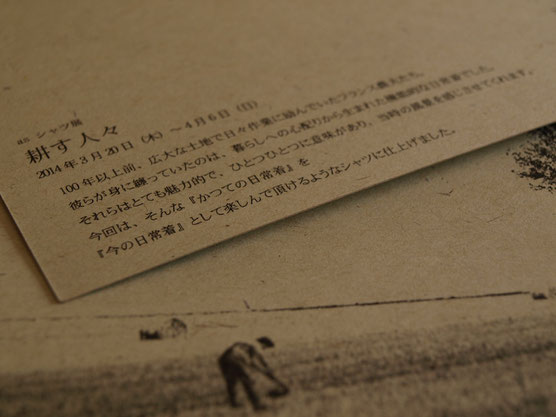 45 シャツ展
耕す人々
2014年3月20日（木）～4月6日（日）
100年以上前、広大な土地で日々作業に励んでいたフランス農夫たち。
彼らが身に纏っていたのは、暮らしへの心配りから生まれた機能的な日常着でした。
それらはとても魅力的で、ひとつひとつに意味があり、当時の風景を感じさせてくれます。
今回は、そんな『かつての日常着』を
『今の日常着』として楽しんで頂けるようなシャツに仕上げました。